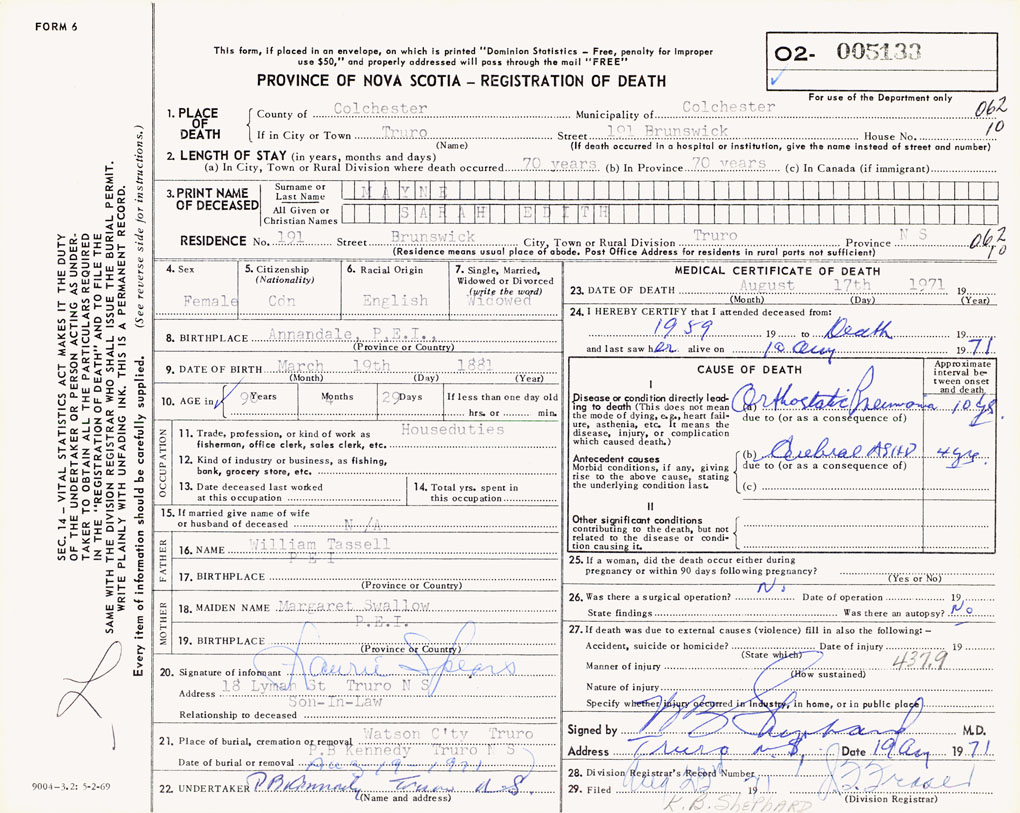 FORM 6
This form, if placed in an envelope, on which is printed "Dominion Statistics – Free, penalty for improper
use $50," and properly addressed will pass through the mail "FREE"
PROVINCE OF NOVA SCOTIA – REGISTRATION OF DEATH
02- 005133
For use of the Department only
062
10
1. PLACE OF DEATH
County of Colchester Municipality of Colchester
If in City or Town Truro Street 191 Brunswick House No.
(Name) (If death occurred in a hospital or institution, give the name instead of street and number)
2. LENGTH OF STAY (in years, months and days)
(a) In City, Town or Rural Division where death occurred 70 years (b) In Province 70 years (c) In Canada (if immigrant)
3. PRINT NAME OF DECEASED
Surname or Last Name MAYNE
All Given or Christian Names SARAH EDITH
RESIDENCE No. 191 Street Brunswick City, Town or Rural Division Truro Province N S
(Residence means usual place of abode. Post Office Address for residents in rural parts not sufficient)
062
10
4. Sex
Female
5. Citizenship
(Nationality)
Cdn
6. Racial Origin
English
7. Single, Married,
Widowed or Divorced
(write the word)
Widowed
8. BIRTHPLACE Annandale, P.E.I.,
(Province or Country)
9. DATE OF BIRTH March 19th 1881
(Month) (Day) (Year)
10. AGE in 90 Years 4 Months 29 Days If less than one day old
hrs. or min.
OCCUPATION
11. Trade, profession, or kind of work as Houseduties
fisherman, office clerk, sales clerk, etc.
12. Kind of industry or business, as fishing,
bank, grocery store, etc.
13. Date deceased last worked
at this occupation
14. Total yrs. spent in
this occupation
15. If married give name of wife
or husband of deceased N/A
FATHER
16. NAME William Tassell
P E I
17. BIRTHPLACE
(Province or Country)
MOTHER
18. MAIDEN NAME Margaret Swallow
P.E.I.
19. BIRTHPLACE
(Province or Country)
20. Signature of informant Laurie Spears
Address 18 Lyman St Truro N S
Son-In-Law
Relationship to deceased
21. Place of burial, cremation or removal Watson C'ty Truro
P.B Kennedy Truro N S
Date of burial or removal Aug 19 - 1971
22. UNDERTAKER P.B. Kennedy Truro N.S.
(Name and address)
MEDICAL CERTIFICATE OF DEATH
23. DATE OF DEATH August 17th 1971 19
(Month) (Day) (Year)
24. I HEREBY CERTIFY that I attended deceased from:
1959 19 to Death 19
and last saw her alive on 10 Aug 1971
CAUSE OF DEATH
Approximate
interval be-
tween onset
and death
I
Disease or condition directly lead-
ing to death (This does not mean
the mode of dying, e.g., heart fail-
ure, asthenia, etc. It means the
disease, injury, or complication
which caused death.)
(a) Orthostatic Pneumonia
due to (or as a consequence of)
Antecedent causes
Morbid conditions, if any, giving
rise to the above cause, stating
the underlying condition last.
(b) Cerebral ASHD 4 yrs.
due to (or as a consequence of)
(c)
II
Other significant conditions
contributing to the death, but not
related to the disease or condi-
tion causing it.
25. If a woman, did the death occur either during
pregnancy or within 90 days following pregnancy?
(Yes or No)
26. Was there a surgical operation? No Date of operation 19
State findings Was there an autopsy? No
27. If death was due to external causes (violence) fill in also the following: –
Accident, suicide or homicide? Date of injury 19
(State which)
4379
Manner of injury
(How sustained)
Nature of injury
Specify whether injury occurred in Industry, in home, or in public place
Signed by Shephard M.D.
Address Truro N.S. Date 19 Aug 1971
28. Division Registrar's Record Number
29. Filed Aug 71
(Division Registrar)
K.B. SHEPHARD
SEC. 14 – VITAL STATISTICS ACT MAKES IT THE DUTY
OF THE UNDERTAKER OR PERSON ACTING AS UNDER-
TAKER TO OBTAIN ALL THE PARTICULARS REQUIRED
IN THE "REGISTRATION OF DEATH" AND TO FILE THE
SAME WITH THE DIVISION REGISTRAR WHO SHALL ISSUE THE BURIAL PERMIT.
WRITE PLAINLY WITH UNFADING INK. THIS IS A PERMANENT RECORD.
Every item of information should be carefully supplied. (See reverse side for instructions.)
9004-3.2: 5-2-69